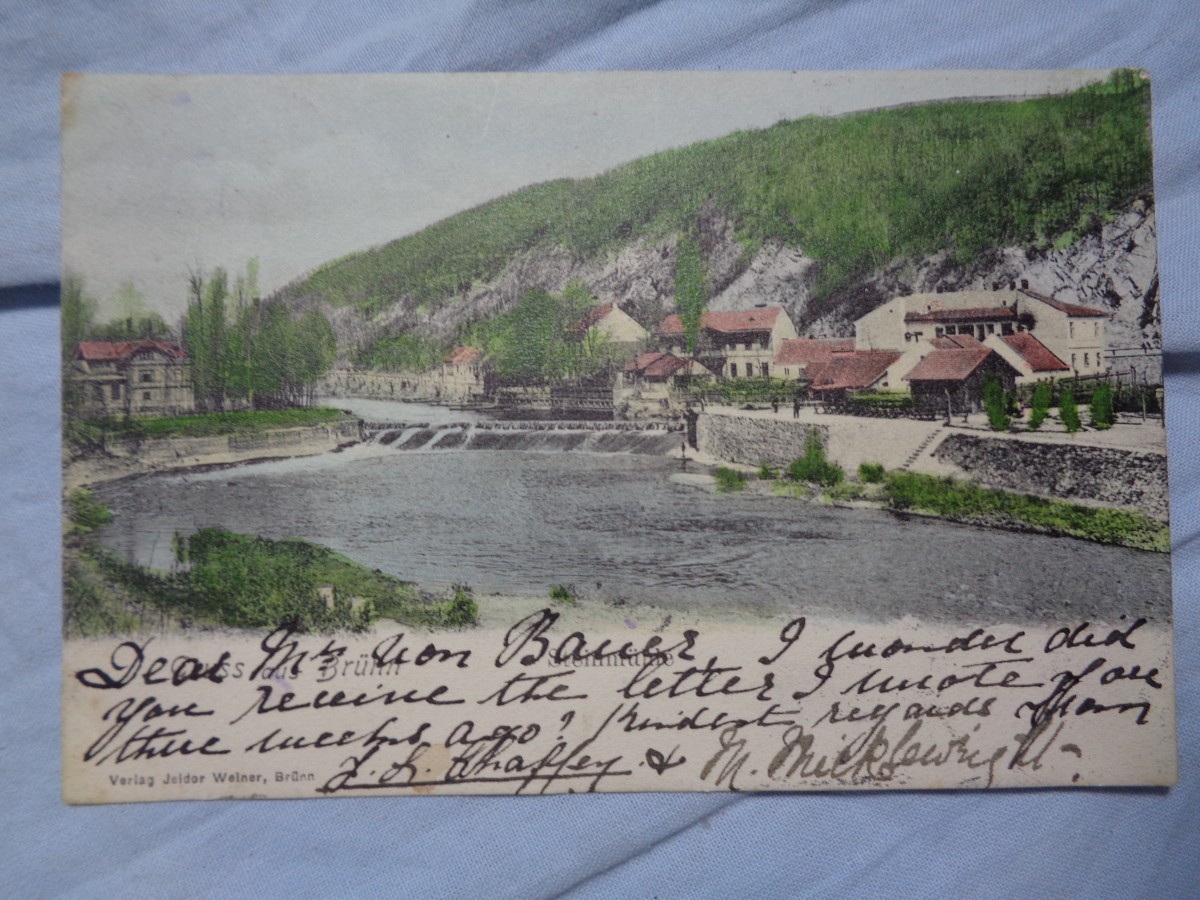 Gruss aus Brünn
Steinmühle
Dear Mrs von Bauer, I wonder did
you receive the letter I wrote you
three weeks ago? Kindest regards from
& M. Micklewright.
Verlag Isidor Weiner, Brünn